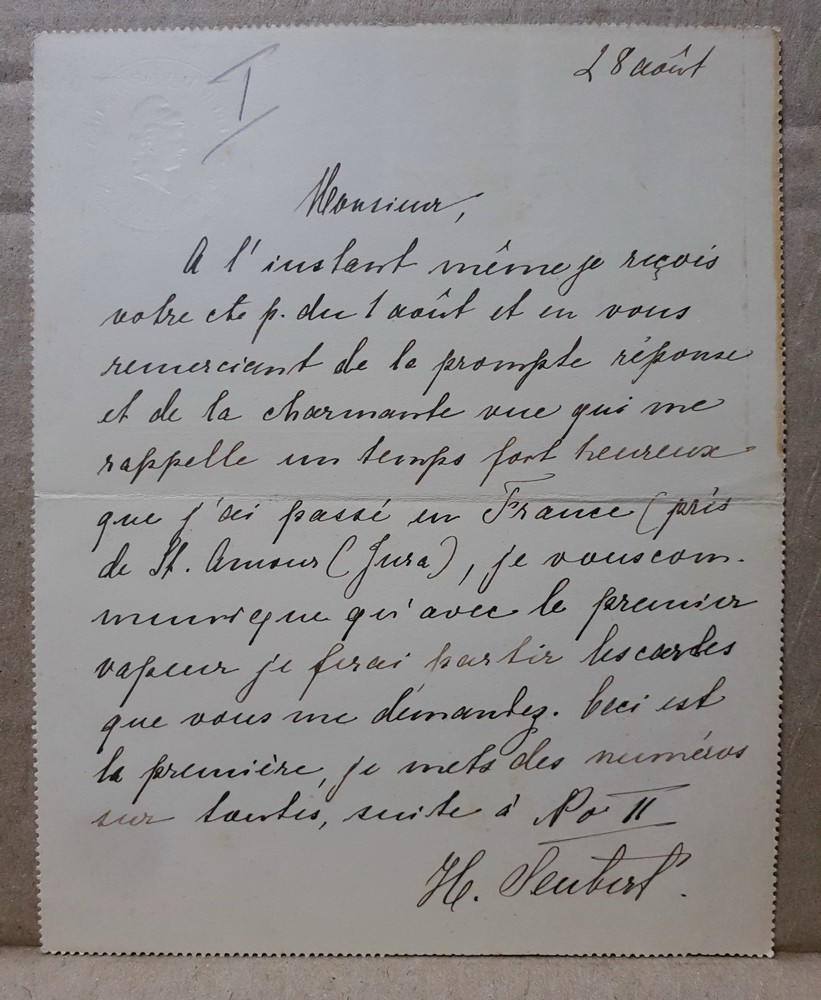 I
28 août
Monsieur,
A l'instant même je reçois
votre cte p. du 1 août et en vous
remerciant de la prompte réponse
et de la charmante vue qui me
rappelle un temps fort heureux
que j'ai passé en France (près
de St. Amour (Jura), je vous com-
munique qu'avec le premier
vapeur je ferai partir les cartes
que vous me démandez. Ceci est
la première, je mets des numéros
sur toutes, suite á No II
H. Seubert.